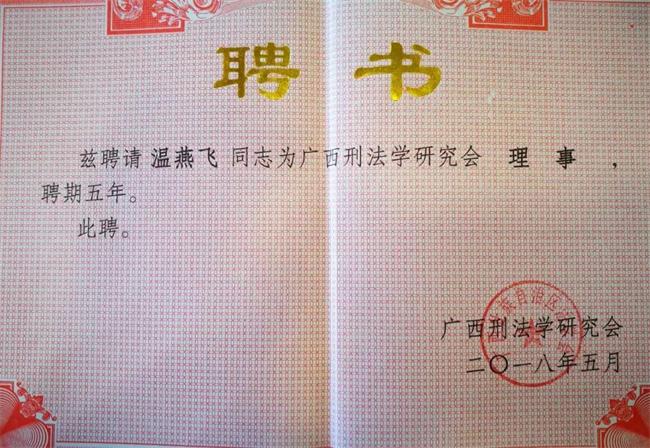 聘书
兹聘请 温燕飞 同志为广西刑法学研究会 理 事 ,
聘期五年。
此聘。
广西刑法学研究会
二〇一八年五月
族自治区